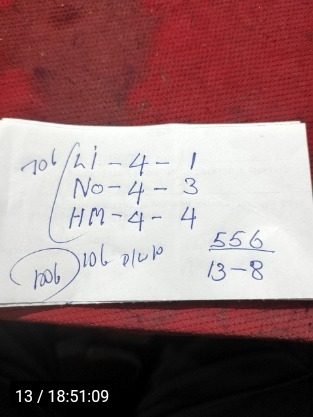 106 Li - 4 - 1
No - 4 - 3
HM - 4 - 4
556
106 106
13 - 8
13 / 18:51:09